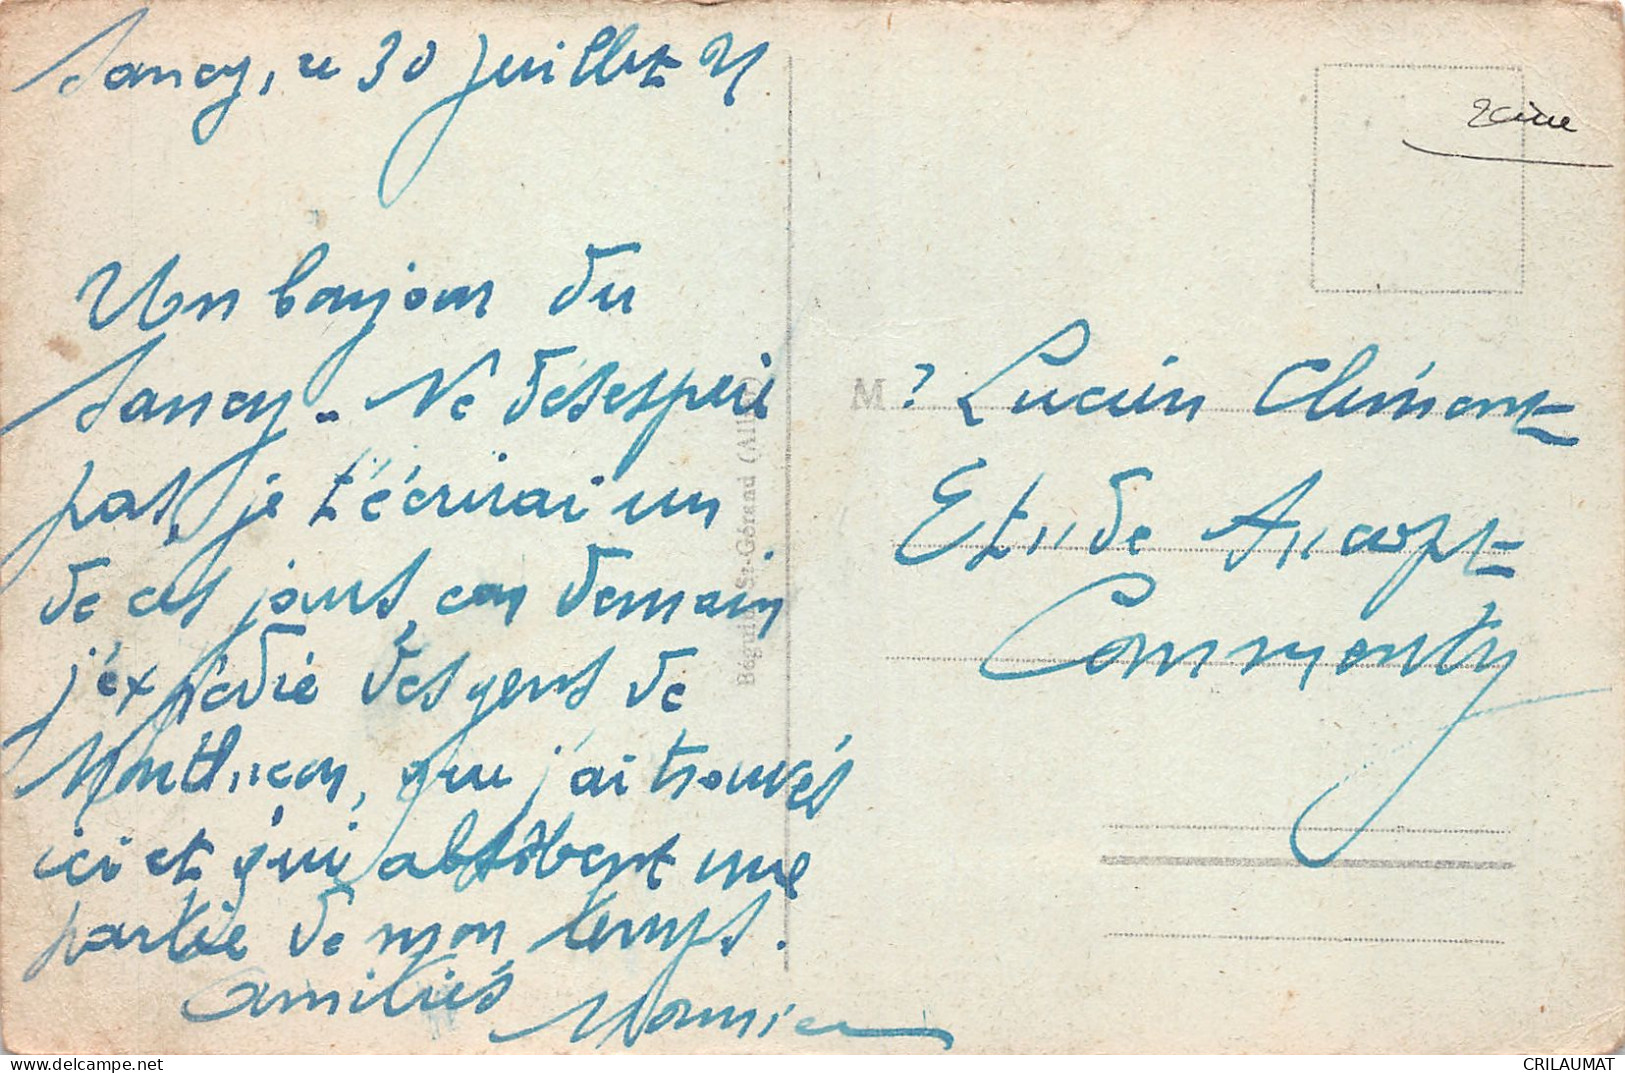 Sancy, le 30 Juillet
Un bonjour du
Sancy. Ne désespère
pas, je t'écrirai un
de ces jours, car demain
j'expédie des gens de
Montluçon, que j'ai trouvés
ici et qui absorbent une
partie de mon temps.
Amitiés
Béguin St-Gérand (Allier)
M. Lucien Clément
Etude
Commentry
CRILAUMAT